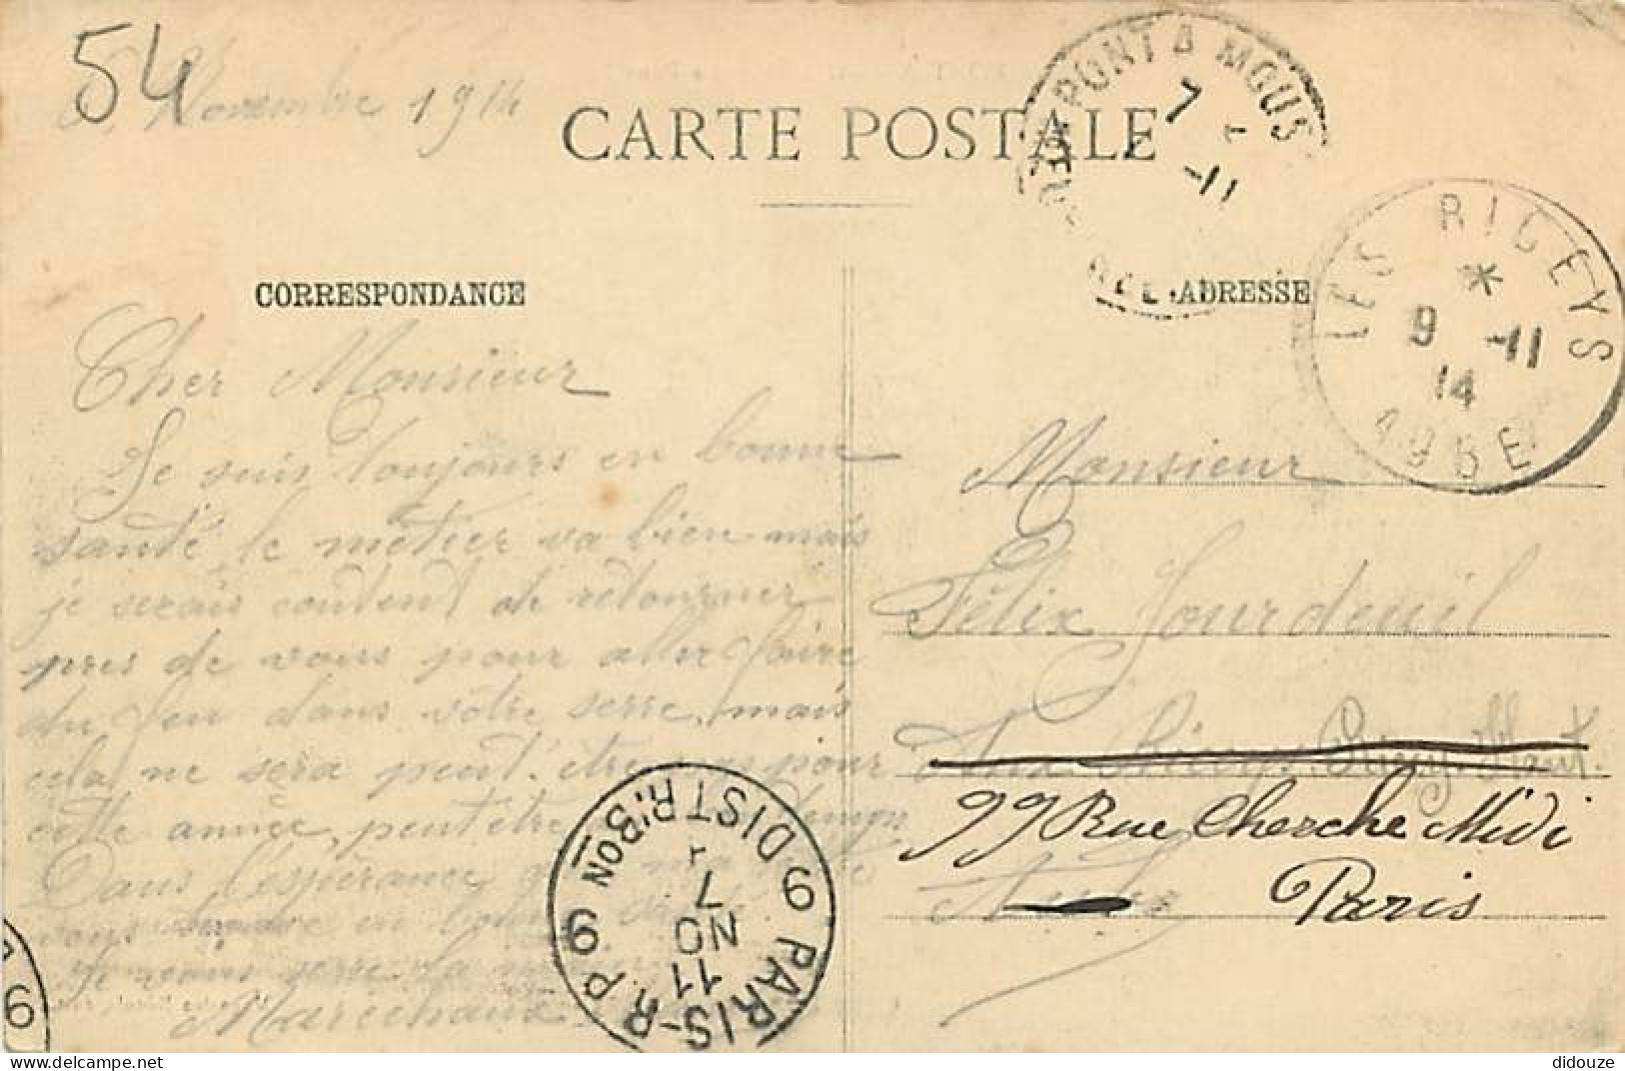 54
Novembre 1914
CARTE POSTALE
PONT A MOUS
7 -11
LES RICEYS
9 -11
14
AUBE
CORRESPONDANCE
ADRESSE
Cher Monsieur
Je suis toujours en bonne
santé le métier va bien mais
je serais content de retourner
près de vous pour aller faire
du feu dans votre serre, mais
cela ne sera peut-être pas pour
cette année, peut être
Dans l'espérance
vous en bonne
Je vous serre la
Maréchaux
Monsieur
Félix Jourdeuil
Aux Riceys. Ricey-Haut.
77 Rue Cherche Midi
Paris
Aube
PARIS-R.P. 9 DISTR. BON
9
11
NO
7
1
9
didouze